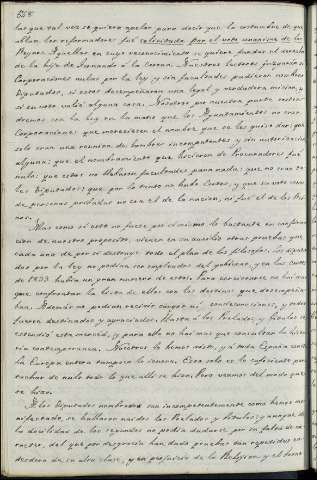 528
que tal vez se quiera apelar para decir que la costumbre de que
hablan los reformadores fué valorizada por el voto unanime de los
Reynos. Aquellas en cuyo reconocimiento se quiere fundar el derecho
de la hija de Fernando á la Corona. Nuestros lectores juzgarán si
Corporaciones nulas por la ley y sin facultades pudieron nombrar
Diputados, si estos desempeñaran una legal y verdadera mision, y
si su voto valia alguna cosa. Nosotros por nuestra parte sosten-
dremos con la ley en la mano que los Ayuntamientos no eran
Corporaciones que mereciesen el nombre que se les quiso dar; que
solo eran una reunion de hombres incompetentes y sin autorizacion
alguna: que el nombramiento que hicieron de Procuradores fué
nulo: que estos se hallaron facultados para nada: que no eran ta-
les Diputados: que por lo tanto no hubo Cortes, y que su voto era
de personas privadas no con el de la nacion, ni fué el de los Rey-
nos.
Mas como si esto no fuese por si mismo lo bastante en confirma-
cion de nuestro proposito, vienen en su auxilio otras pruebas que
cada una de por si destruye todo el plan de los filosofos. Los diputa-
dos por la ley no podian ser empleados del gobierno, y en las Cortes
de 1833 habia un gran numero de estos. Para convencerse no hay mas
que confrontar la lista de ellos con los destinos que desempeña-
ban. Ademas no podian recivir cargos ni condecoraciones, y todos
fueron destinados y agraciados. Hasta á los Prelados y Titulos se
estendió esta merced, y para ello no hay mas que consultar la histo-
ria contemporanea. Nosotros lo hemos visto, y á toda España como
la Europa entera tampoco lo ignora. Esto solo es lo suficiente para
tachar de nulo todo lo que alli se hizo. Pero veamos del modo que
se hizo.
Á los Diputados nombrados tan incompetentemente como hemos ma-
nifestado, se hallaron unidos los Prelados y Titulos; y aunque de
la docilidad de los segundos no podia dudarse por su falta de ca-
racter, del que por desgracia han dado pruebas tan repetidas en
desdoro de su alta clase, y en perjuicio de la Religion y el trono